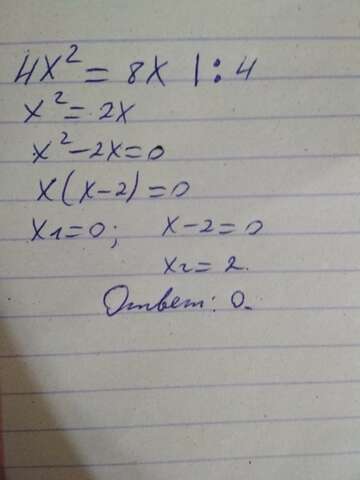 4x² = 8x |:4
x² = 2x
x² - 2x = 0
x(x-2) = 0
x1 = 0; x-2 = 0
x2 = 2.
Ответ: 0.